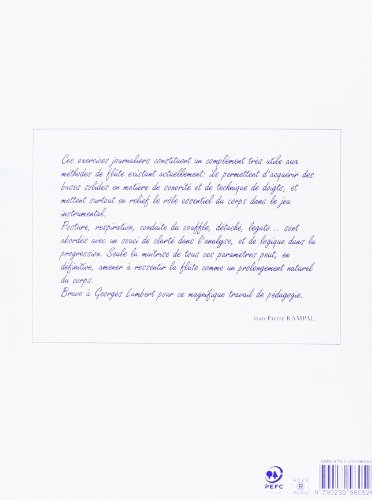 Ces exercices journaliers constituent un complément très utile aux
méthodes de flûte existant actuellement: ils permettent d'acquérir des
bases solides en matière de sonorité et de technique de doigts, et
mettent surtout en relief le rôle essentiel du corps dans le jeu
instrumental.
Posture, respiration, conduite du souffle, détaché, legato... sont
abordés avec un souci de clarté dans l'analyse, et de logique dans la
progression. Seule la maîtrise de tous ces paramètres peut, en
définitive, amener à ressentir la flûte comme un prolongement naturel
du corps.
Bravo à Georges Lambert pour ce magnifique travail de pédagogie.
Jean-Pierre RAMPAL
PEFC
R
9 790230 960526